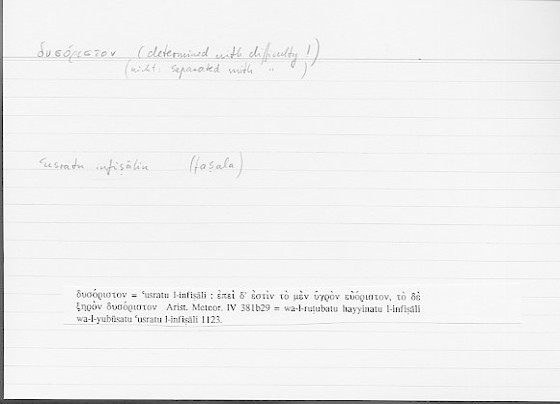 δυσόριστον (determined with difficulty!)
(nicht: separated with " )
ʿusratu infiṣālin (faṣala)
δυσόριστον = ʿusratu l-infiṣāli ; ἐπεὶ δ' ἐστὶν τὸ μὲν ὑγρὸν εὐόριστον, τὸ δὲ
ξηρὸν δυσόριστον Arist. Meteor. IV 381b29 = wa-l-ruṭūbatu hayyinatu l-infiṣāli
wa-l-yubūsatu ʿusratu l-infiṣāli 1123.